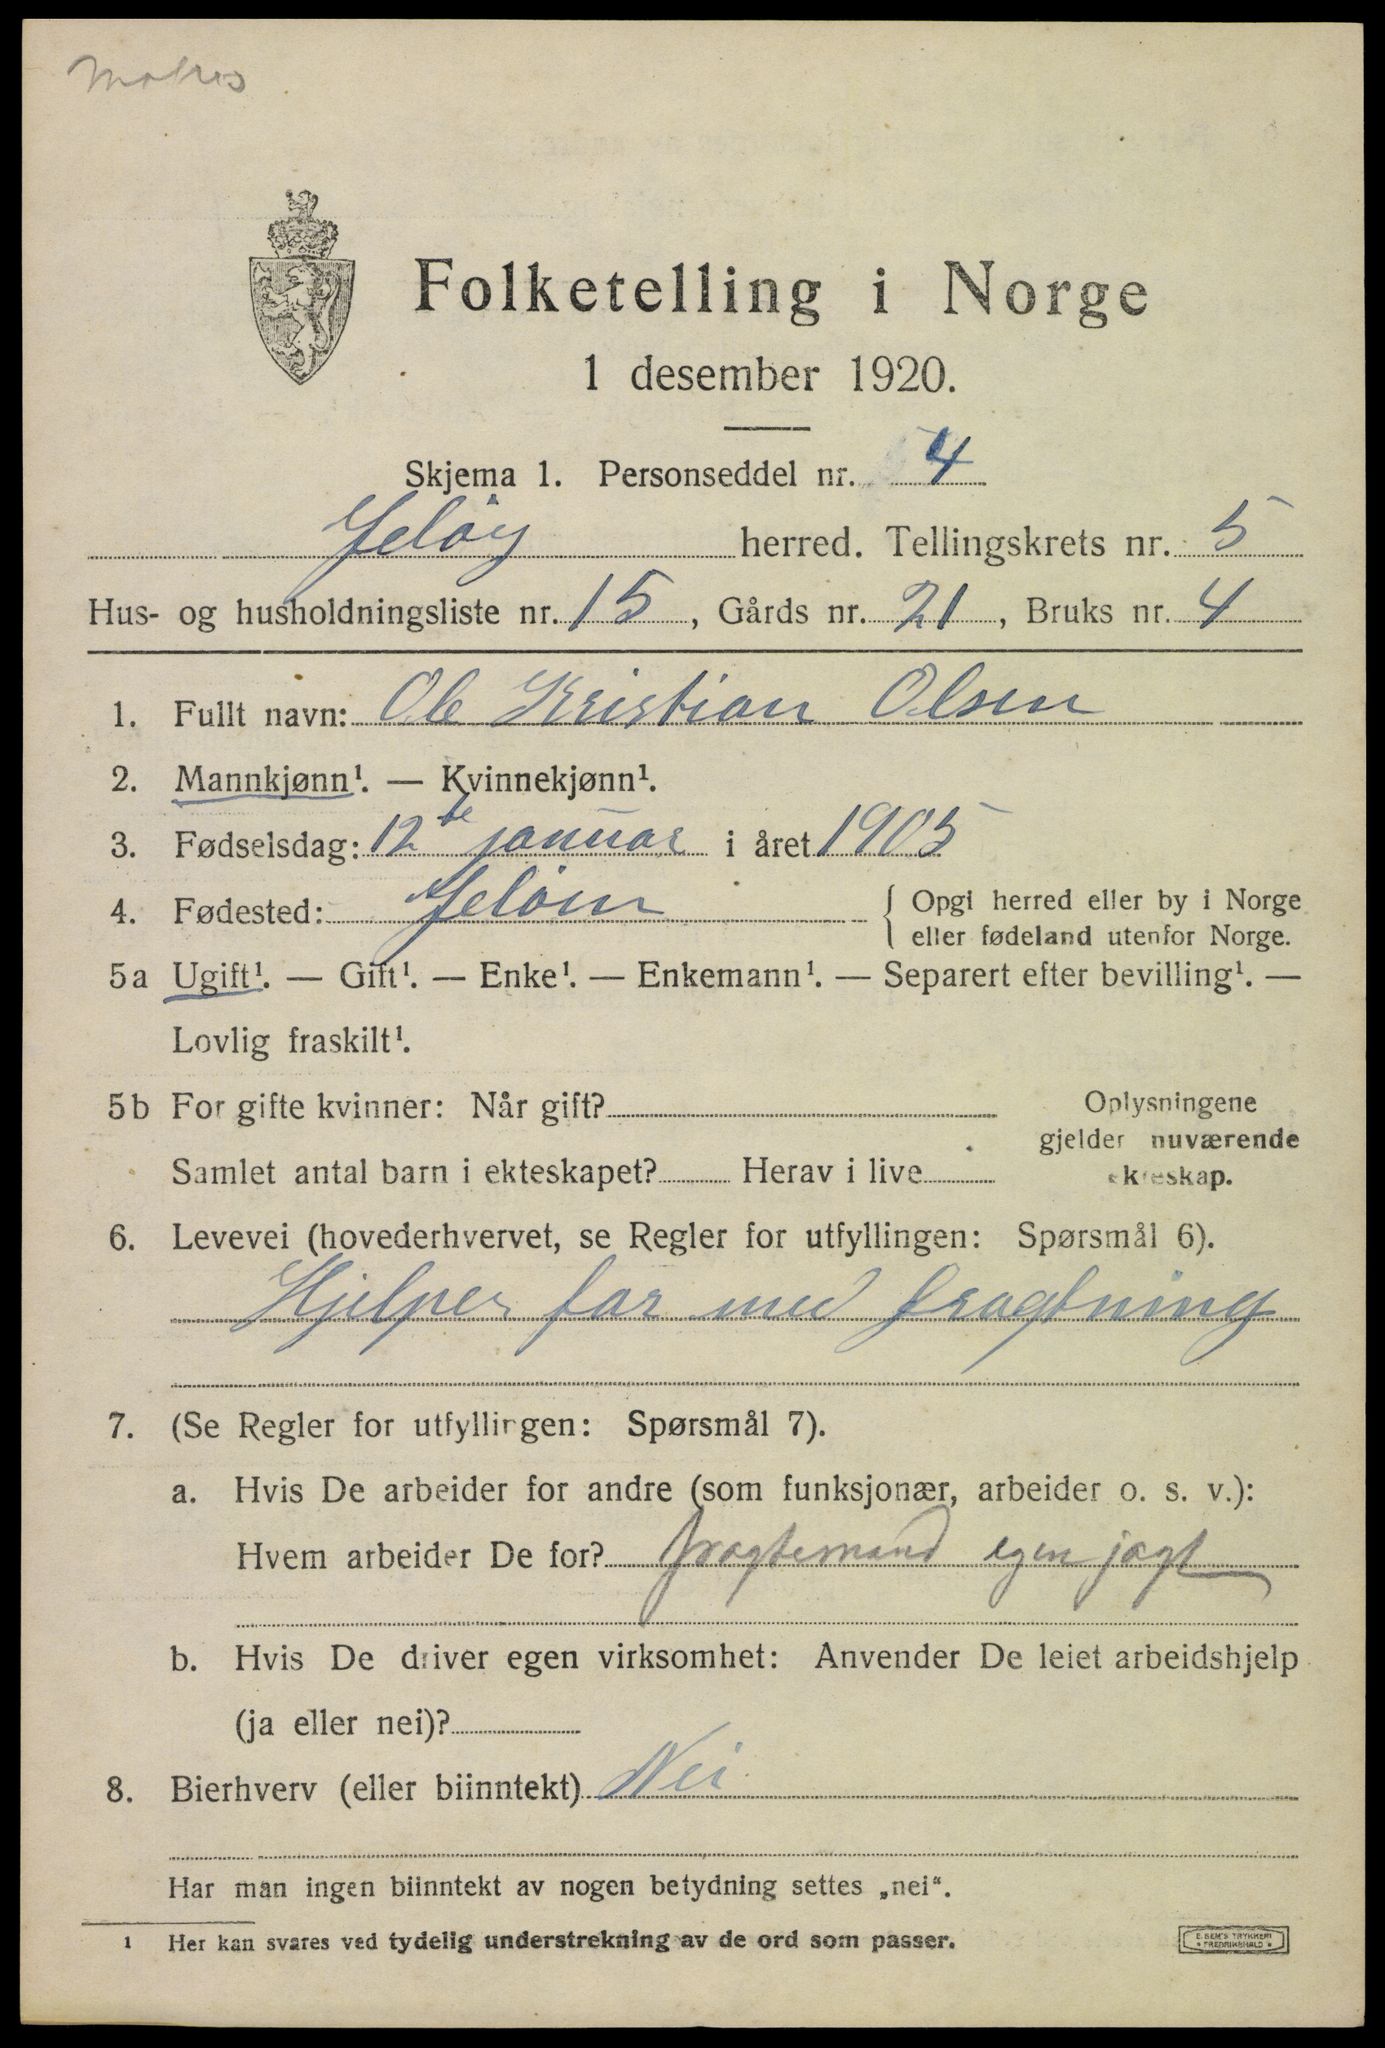 Folketelling i Norge
1 desember 1920.
Skjema 1. Personseddel nr. 4
Jeløy herred. Tellingskrets nr. 5
Hus- og husholdningsliste nr. 15, Gårds nr. 21, Bruks nr. 4
1. Fullt navn: Ole Kristian Olsen
2. Mannkjønn¹. — Kvinnekjønn¹.
3. Fødselsdag: 12te januar i året 1905
4. Fødested: Jeløen { Opgi herred eller by i Norge
eller fødeland utenfor Norge.
5a Ugift¹. — Gift¹. — Enke¹. — Enkemann¹. — Separert efter bevilling¹. —
Lovlig fraskilt¹.
5b For gifte kvinner: Når gift?
Samlet antal barn i ekteskapet? Herav i live
Oplysningene
gjelder nuværende
ekteskap.
6. Levevei (hovederhvervet, se Regler for utfyllingen: Spørsmål 6).
Hjelper far med fragtning
7. (Se Regler for utfyllingen: Spørsmål 7).
a. Hvis De arbeider for andre (som funksjonær, arbeider o. s. v.):
Hvem arbeider De for? fragtemand egen jagt
b. Hvis De driver egen virksomhet: Anvender De leiet arbeidshjelp
(ja eller nei)?
8. Bierhverv (eller biinntekt) Nei
Har man ingen biinntekt av nogen betydning settes „nei“.
1 Her kan svares ved tydelig understrekning av de ord som passer.
E. SEM'S TRYKKERI
FREDRIKSHALD